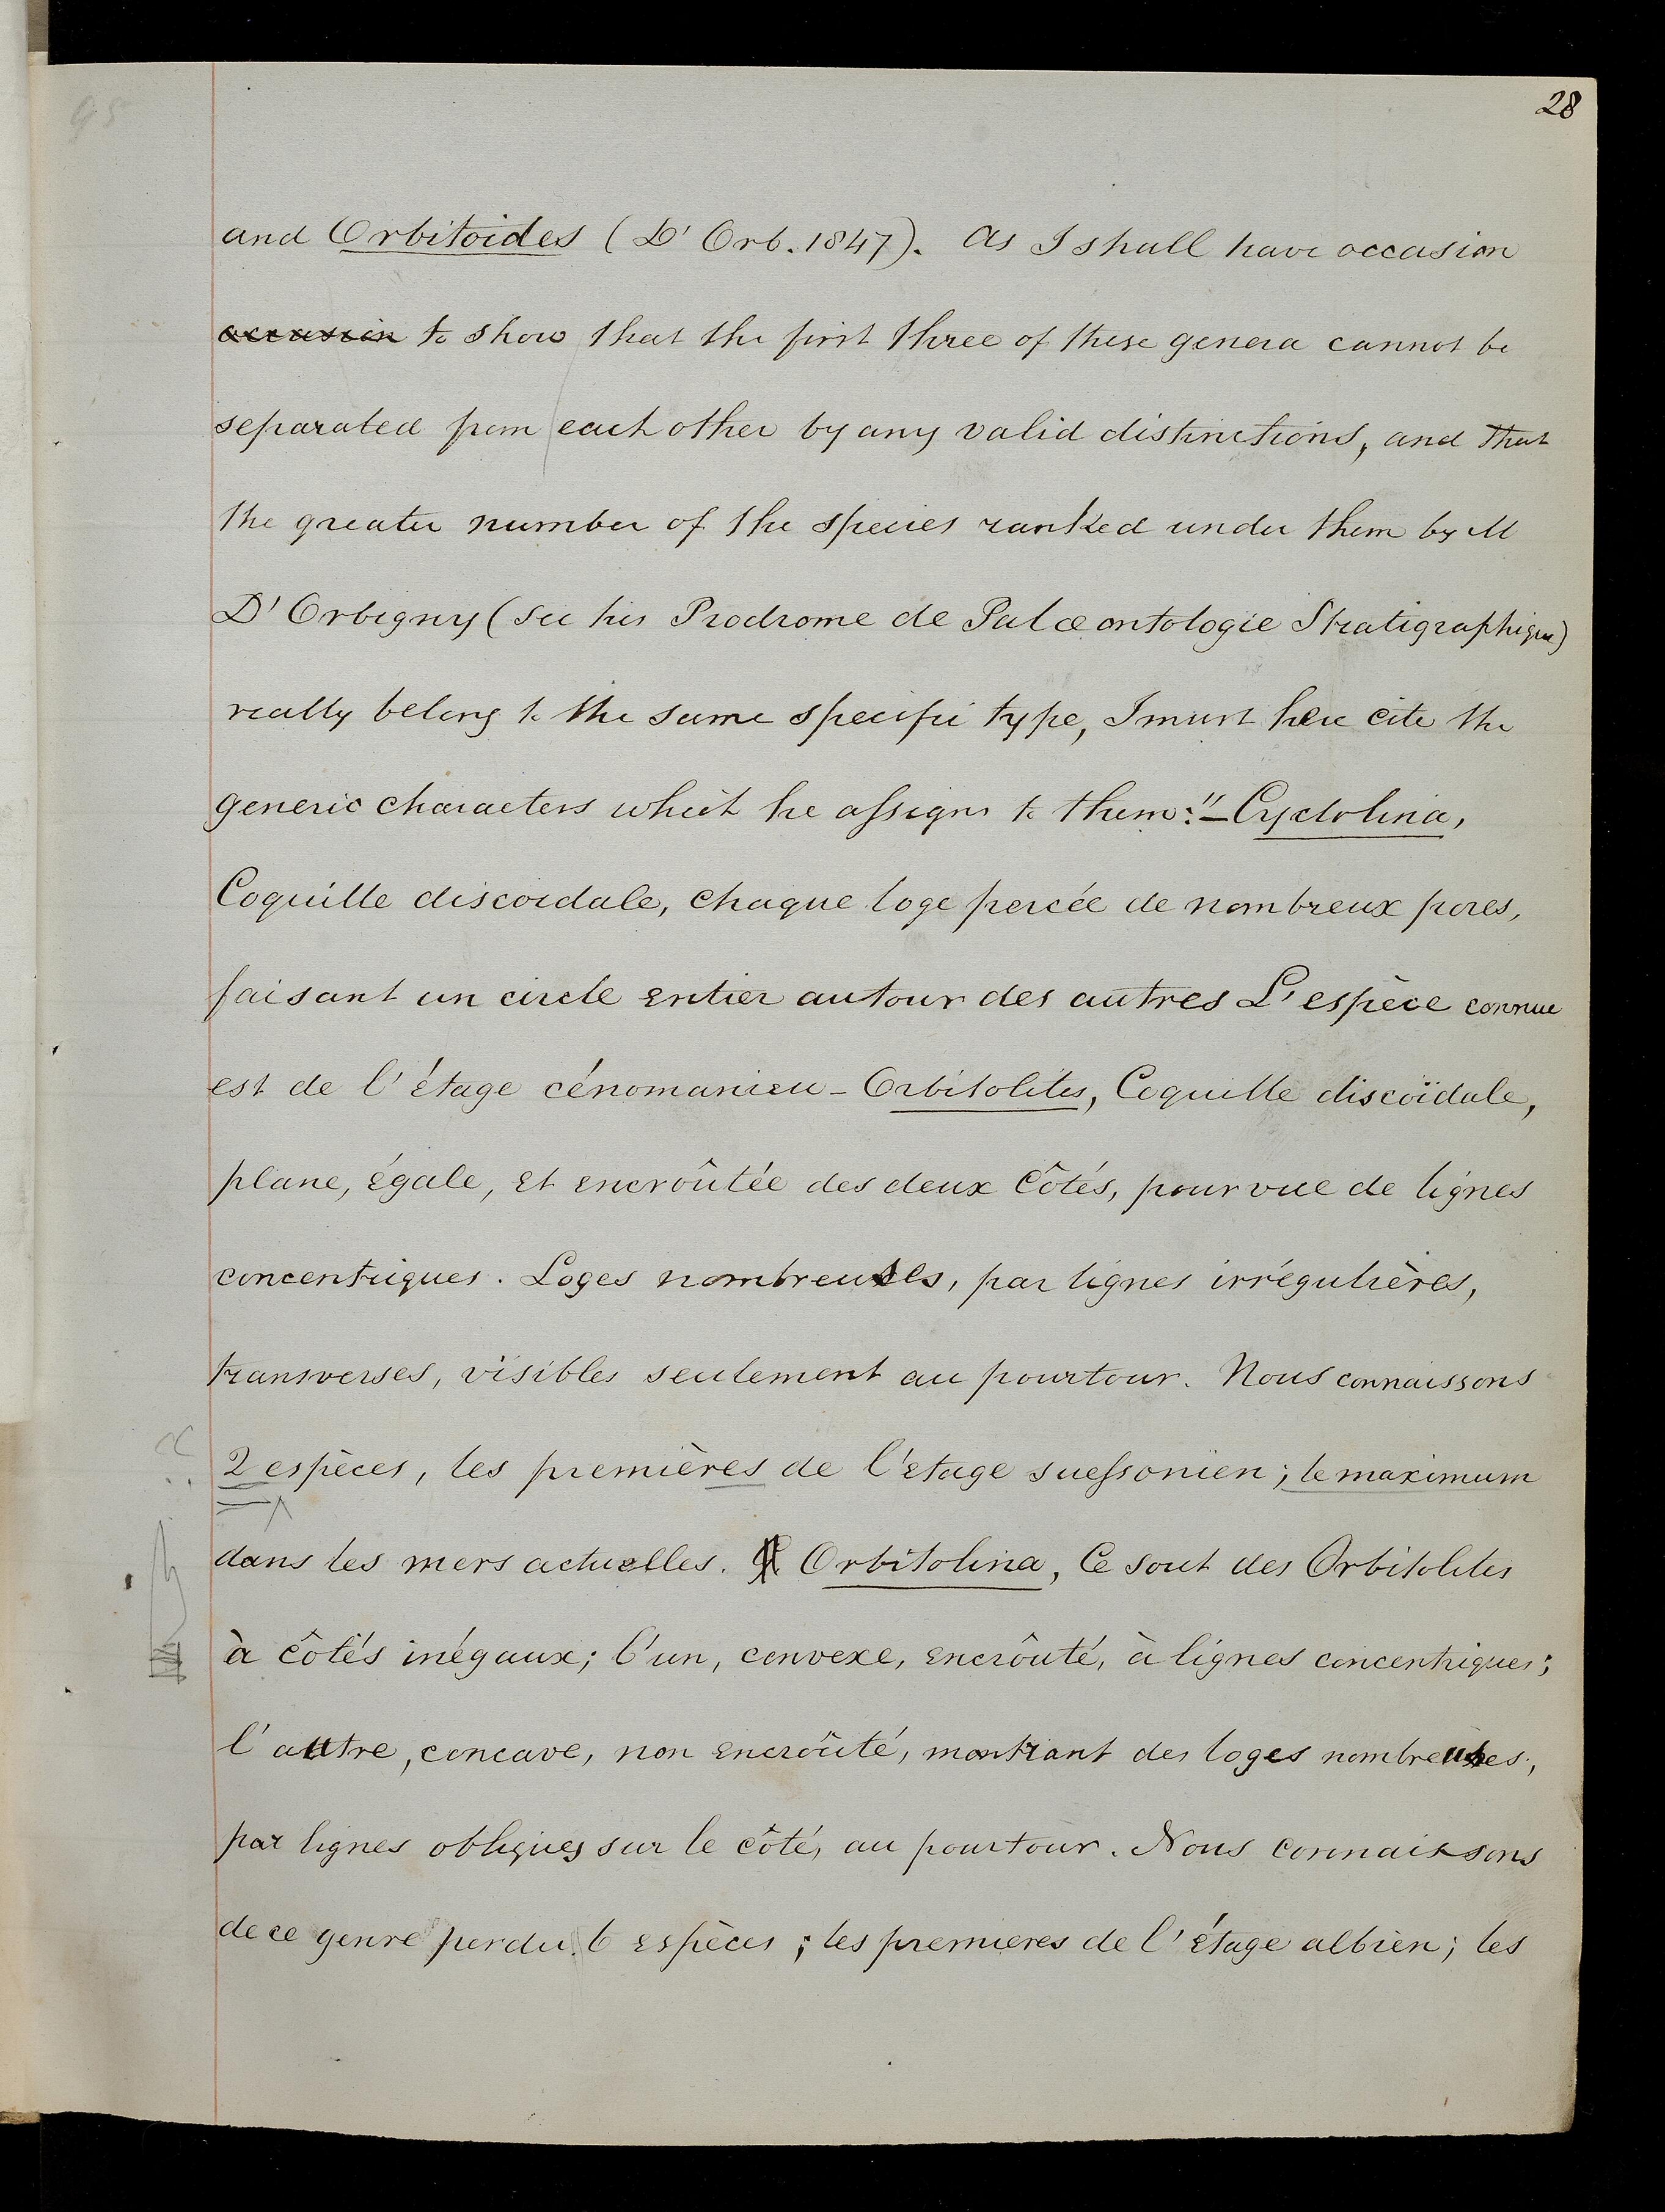 28
and Orbitoides (D' Orb. 1847). As I shall have occasion
occasion to show that the first three of these genera cannot be
separated from each other by any valid distinctions, and that
the greater number of the species ranked under them by M
D'Orbigny (see his Prodrome de Palæontologie Stratigraphique)
really belong to the same specific type, I must here cite the
generic characters which he assigns to them:"– Cyclolina,
Coquille discoidale, chaque loge percée de nombreux pores,
faisant un circle entier autour des autres L'espèce connue
est de l'étage cénomanien – Orbitolites, Coquille discoïdale,
plane, égale, et encroûtée des deux côtés, pourvue de lignes
concentriques. Loges nombreuses, par lignes irrégulières,
transverses, visibles seulement au pourtour. Nous connaissons
2 espèces, les premières de l'etage suessonien; le maximum
dans les mers actuelles. Orbitolina, Ce sont des Orbitolites
à côtés inégaux; l'un, convexe, encroûté, à lignes concentriques;
l'autre, concave, non encroûté, montrant des loges nombreuses,
par lignes obliques sur le côté, au pourtour. Nous connaissons
de ce genre perdu. 6 espèces; les premieres de l'étage albien; les